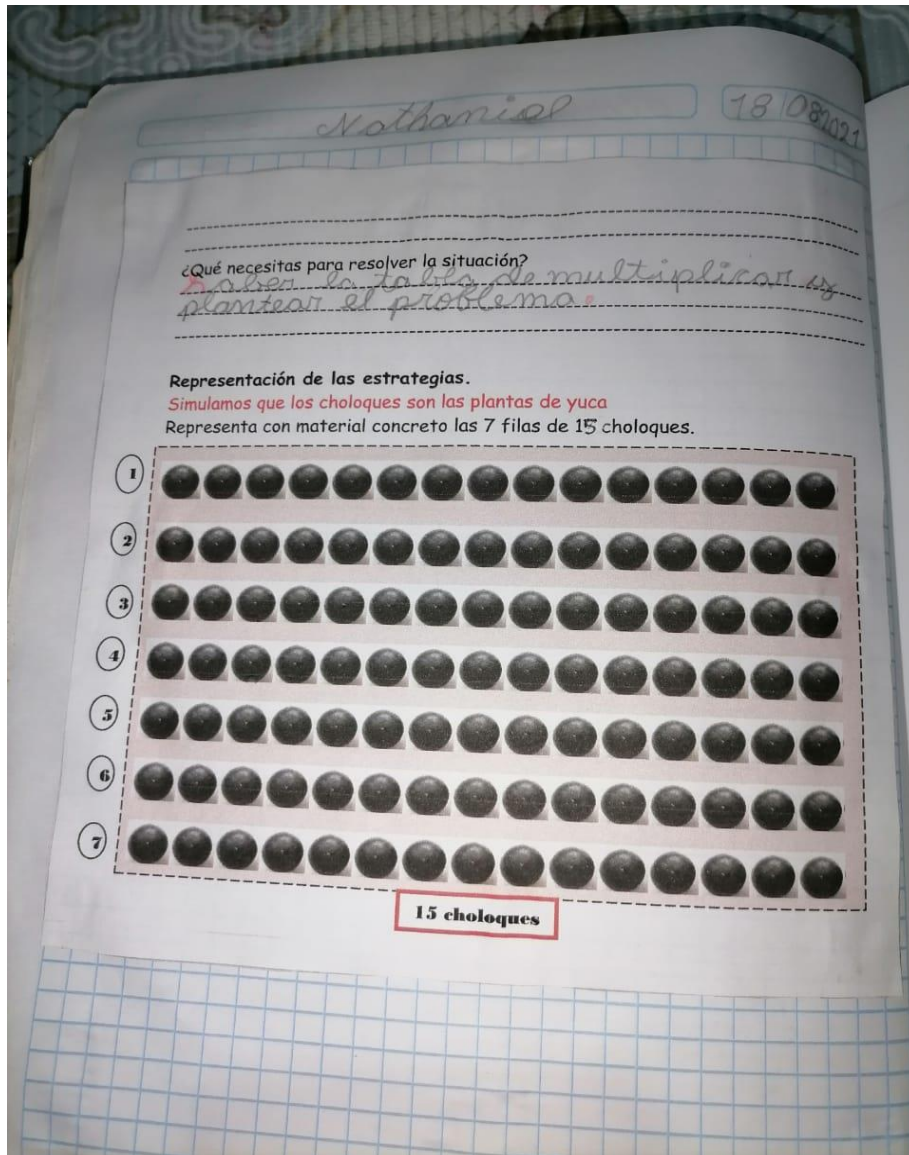 Nathaniel
18 08 2021
¿Qué necesitas para resolver la situación?
Saber la tabla de multiplicar y
plantear el problema.
Representación de las estrategias.
Simulamos que los choloques son las plantas de yuca
Representa con material concreto las 7 filas de 15 choloques.
1
2
3
4
5
6
7
15 choloques